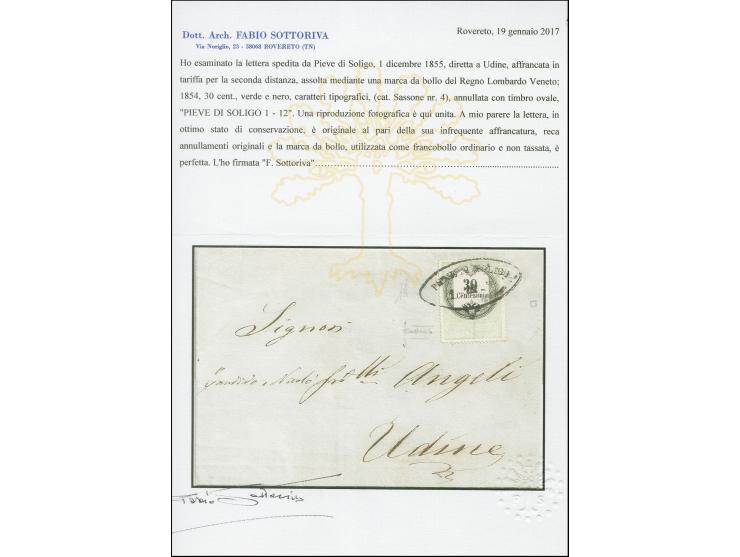 Dott. Arch. FABIO SOTTORIVA
Via Noriglio, 23 - 38068 ROVERETO (TN)
Rovereto, 19 gennaio 2017
Ho esaminato la lettera spedita da Pieve di Soligo, 1 dicembre 1855, diretta a Udine, affrancata in
tariffa per la seconda distanza, assolta mediante una marca da bollo del Regno Lombardo Veneto;
1854, 30 cent., verde e nero, caratteri tipografici, (cat. Sassone nr. 4), annullata con timbro ovale,
"PIEVE DI SOLIGO 1 - 12". Una riproduzione fotografica è qui unita. A mio parere la lettera, in
ottimo stato di conservazione, è originale al pari della sua infrequente affrancatura, reca
annullamenti originali e la marca da bollo, utilizzata come francobollo ordinario e non tassata, è
perfetta. L'ho firmata "F. Sottoriva"
30
Centesimi
Signori
Angeli
Udine
Fabio Sottoriva